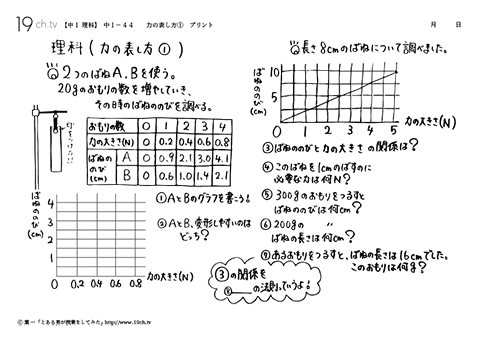 19 ch.tv 【中1 理科】 中1-44 力の表し方① プリント 月 日
理科(力の表し方①)
2つのばねA,Bを使う。
20gのおもりの数を増やしていき、
その時のばねののびを調べる。
おもりの数 0 1 2 3 4
力の大きさ(N) 0 0.2 0.4 0.6 0.8
ばねののび(cm) A 0 0.9 2.1 3.0 4.1
B 0 0.6 1.0 1.4 2.1
ばねののび(cm)
4
3
2
1
0
0 0.2 0.4 0.6 0.8
力の大きさ(N)
①AとBのグラフを書こう!
②AとB、変形しやすいのは
どっち?
長さ8cmのばねについて調べました。
ばねののび(cm)
10
5
0 1 2 3 4 5 力の大きさ(N)
③ばねののびと力の大きさの関係は?
④このばねを1cmのばすのに
必要な力は何N?
⑤300gのおもりをつるすと
ばねののびは何cm?
⑥200gの 〃
ばねの長さは何cm?
⑦あるおもりをつるすと、ばねの長さは16cmでした。
このおもりは何g?
③の関係を
⑧ の法則っていうよ!
Ⓒ葉一「とある男が授業をしてみた」http://www.19ch.tv